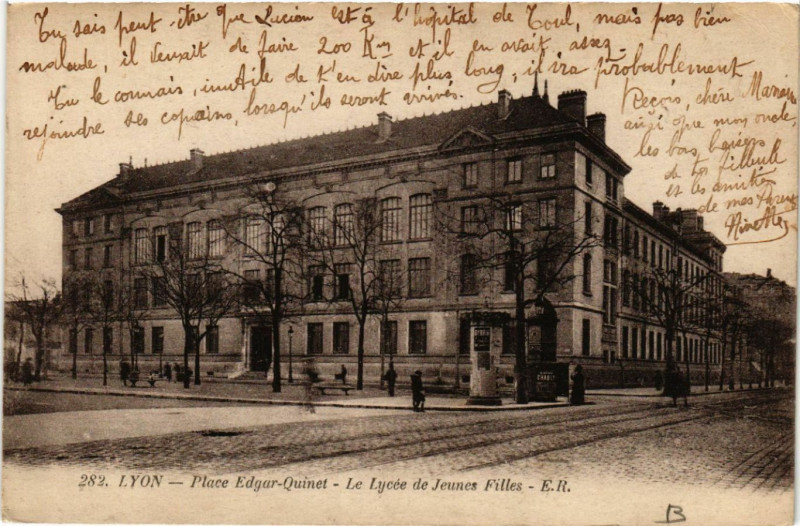 Tu sais peut-être que Lucien est à l'hôpital de Toul, mais pas bien
malade, il venait de faire 200 Km et il en avait assez.
Tu le connais, inutile de t'en dire plus long, il ira probablement
rejoindre ses copains, lorsqu'ils seront arrivés.
Reçois, chère Marraine
ainsi que mon oncle,
les bons baisers
de ta filleule
et les amitiés
de mes Parents
Ninette
282. LYON — Place Edgar-Quinet - Le Lycée de Jeunes Filles - E.R.
B